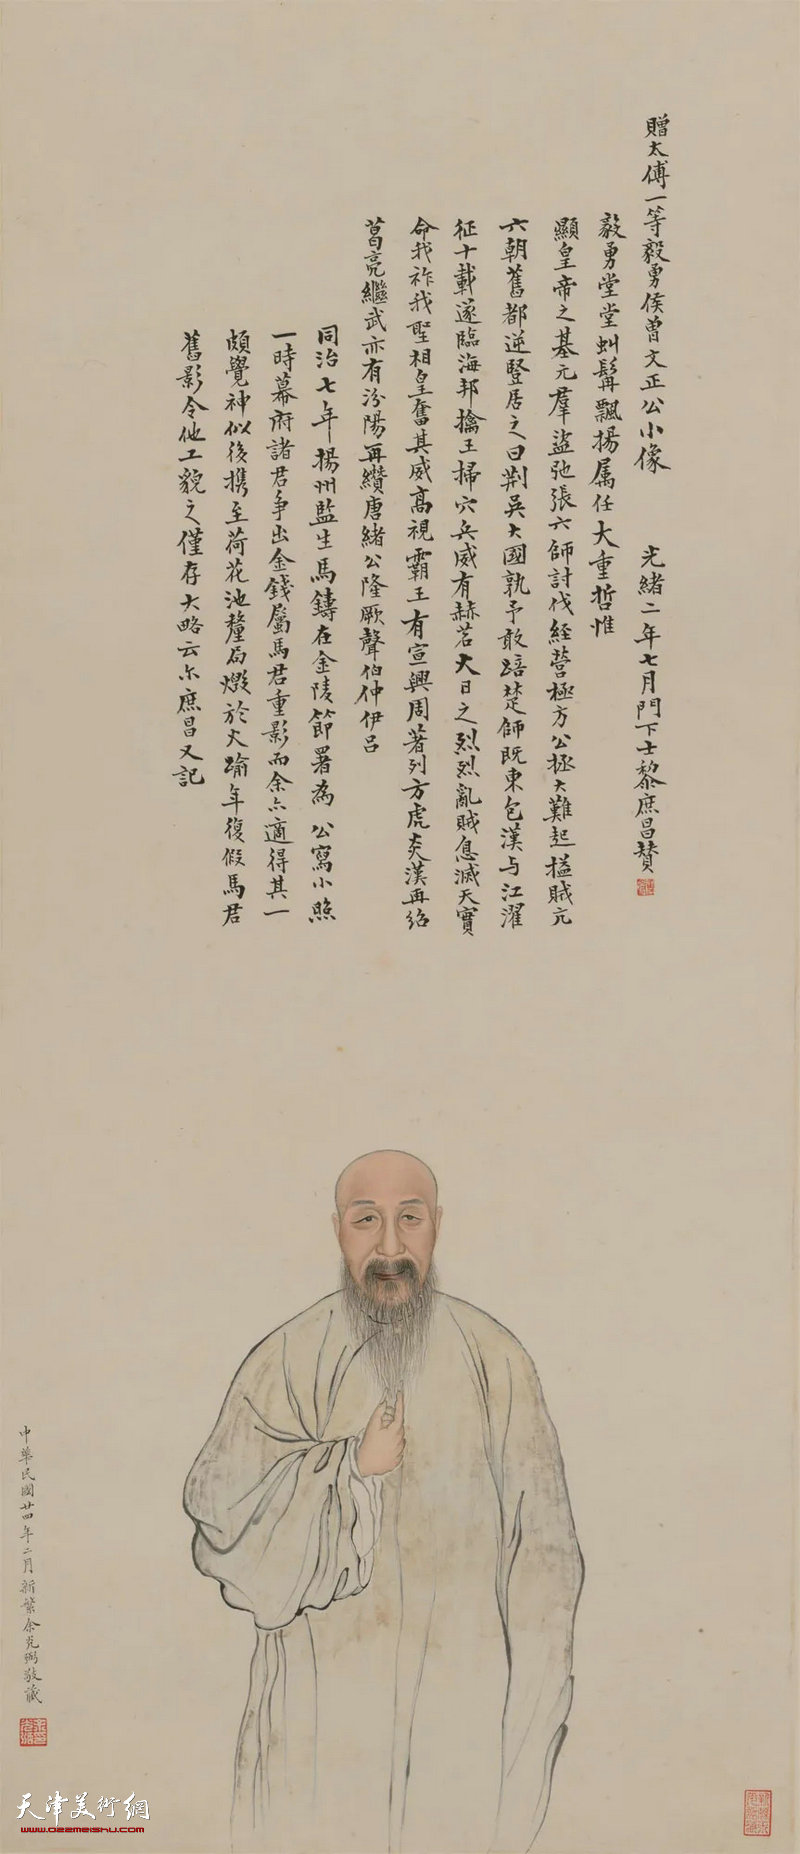 贈太傅一等毅勇侯曾文正公小像　光緒二年七月門下士黎庶昌贊
毅勇堂堂虯髯飄揚屬任大重哲惟
顯皇帝之基元羣盜弛張六師討伐經營極方公拯大難起搤賊亢
六朝舊都逆豎居之曰荆吳大國孰予敢踣楚師既東包漢与江濯
征十載遂臨海邦擒王掃穴兵威有赫若大日之烈烈亂賊息滅天實
命我祚我聖相皇奮其威高視霸王有宣興周著列方虎炎漢再紹
葛亮繼武亦有汾陽再纘唐緒公隆厥聲伯仲伊吕
同治七年揚州監生馬鑄在金陵節署為公寫小照
一時幕府諸君争出金錢屬馬君重影而余亦適得其一
頗覺神似後携至荷花池釐局燬於火踰年復假馬君
舊影令他工貌之僅存大略云尔庶昌又記
中華民國廿四年二月新繁余光敬藏
天津美術網
www.022meishu.com